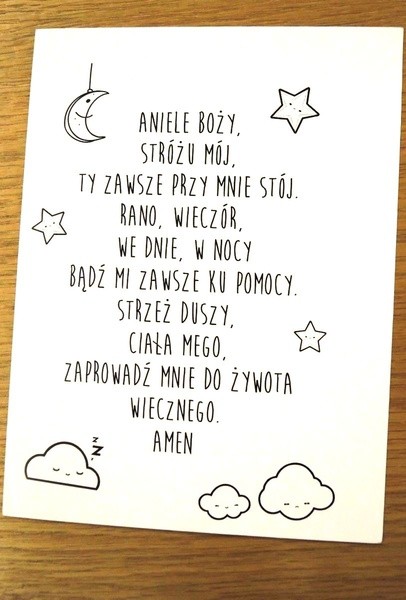 ANIELE BOŻY,
STRÓŻU MÓJ,
TY ZAWSZE PRZY MNIE STÓJ.
RANO, WIECZÓR,
WE DNIE, W NOCY
BĄDŹ MI ZAWSZE KU POMOCY.
STRZEŻ DUSZY,
CIAŁA MEGO,
ZAPROWADŹ MNIE DO ŻYWOTA
WIECZNEGO.
AMEN
z
z.